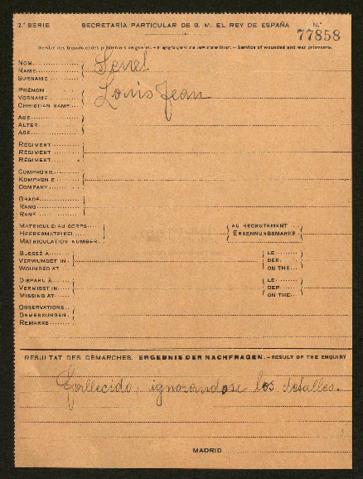 2.ª SERIE SECRETARÍA PARTICULAR DE S. M. EL REY DE ESPAÑA N.º
77858
NOM
NAME
SURNAME
PRÉNOM
VORNAME
CHRISTIAN NAME
Louis Jean
AGE
ALTER
AGE
RÉGIMENT
REGIMENT
REGIMENT
COMPAGNIE
KOMPAGNIE
COMPANY
GRADE
RANG
RANK
MATRICULE AU CORPS AU RECRUTEMENT
HEERESMATRIKEL ERKENNUNGSMARKE
MATRICULATION NUMBER
BLESSÉ A LE
VERWUNDET IN DER
WOUNDED AT ON THE
DISPARU A LE
VERMISST IN DER
MISSING AT ON THE
OBSERVATIONS
BEMERKUNGEN
REMARKS
RÉSULTAT DES DÉMARCHES. ERGEBNIS DER NACHFRAGEN.—RESULT OF THE ENQUIRY
Fallecido, ignorandose los detalles.
MADRID